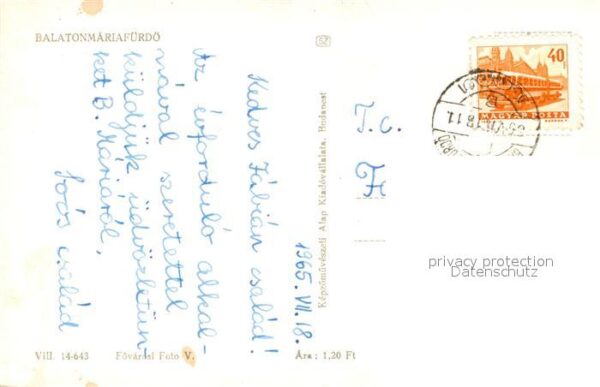 BALATONMÁRIAFÜRDŐ
Kedves Fábián család!
Az évforduló alkal-
mával szeretettel
küldjük üdvözletün-
ket B. Máriáról.
család
1965. VII. 18.
Képzőművészeti Alap Kiadóvállalata, Budapest
T. c.
F
40 f
MAGYAR POSTA
privacy protection
Datenschutz
VIII. 14-643
Fővárosi Foto V.
Ára: 1,20 Ft